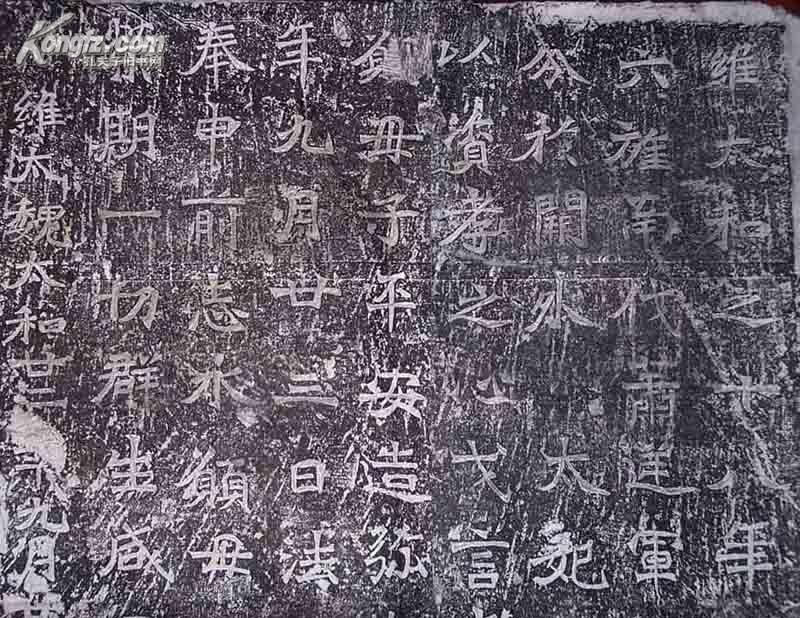 Kongfz.com
孔夫子旧书网
維太和之十八年
六旌南伐蕭逆軍
分於關外太妃
以資孝之心戈言
母子平安造弥
年九月廿三日法
奉申前志永願母
榮期一切群生咸
維大魏太和廿二年九月廿